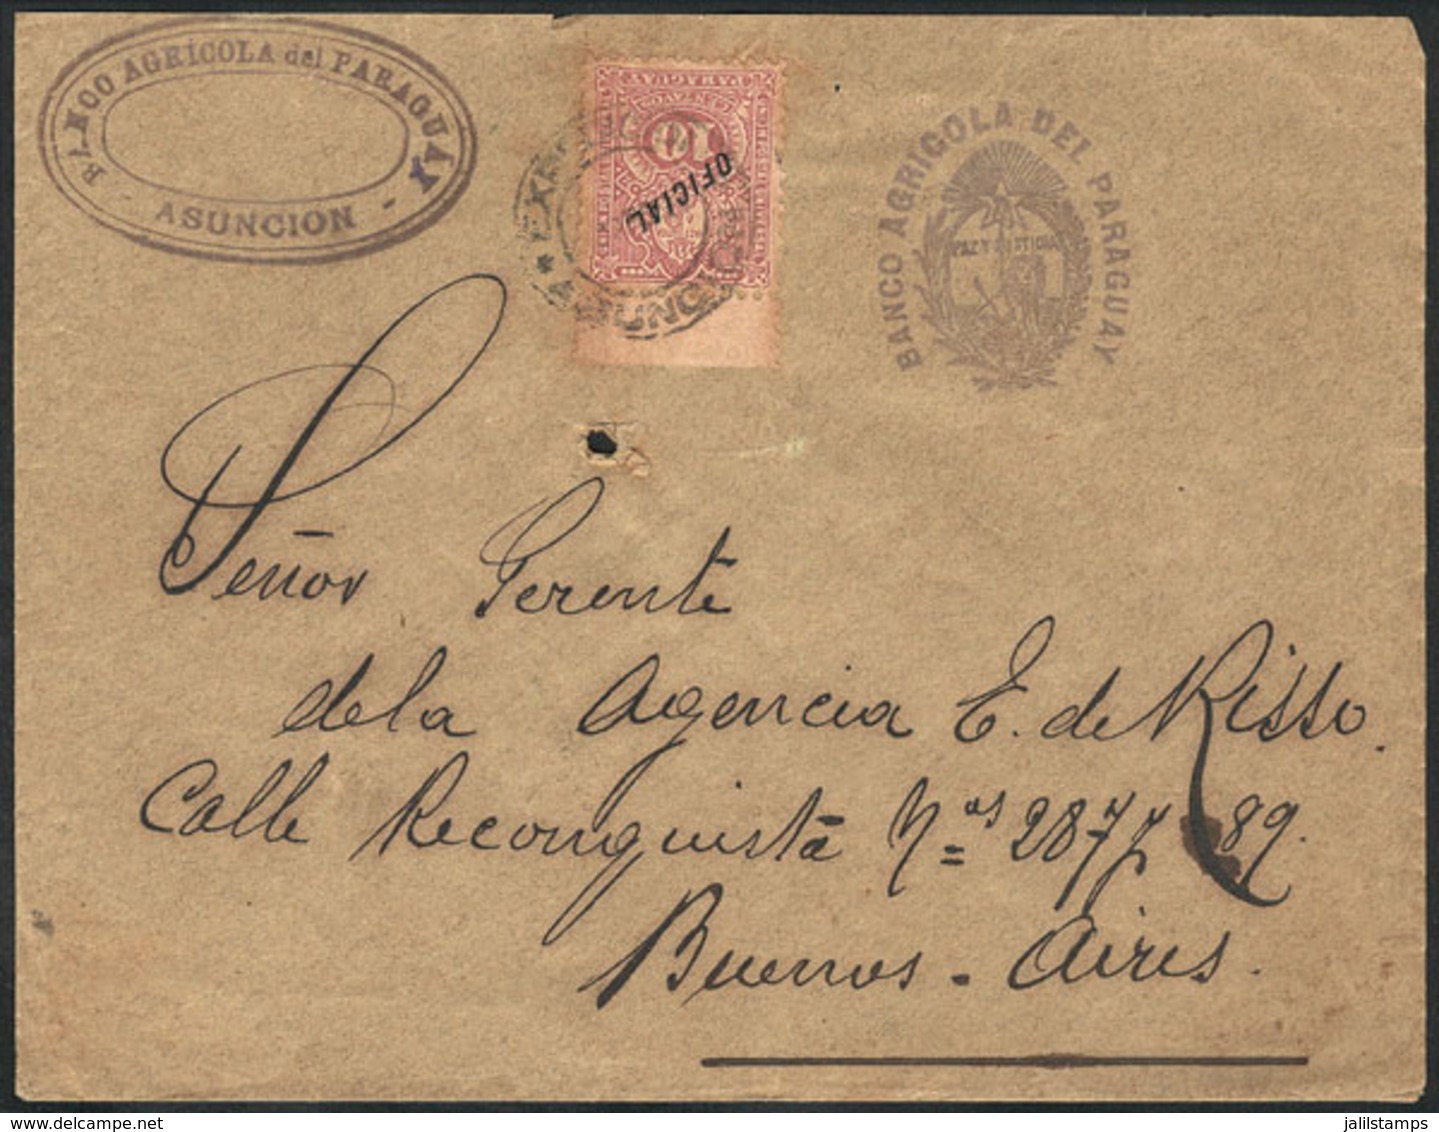 BANCO AGRÍCOLA del PARAGUAY
- ASUNCION -
PARAGUAY
10
OFICIAL
ASUNCION
BANCO AGRICOLA DEL PARAGUAY
PAZ Y JUSTICIA
Señor Gerente
dela Agencia E. de Risso.
Calle Reconquista Nos 287 y 89.
Buenos-Aires.
jalilstamps